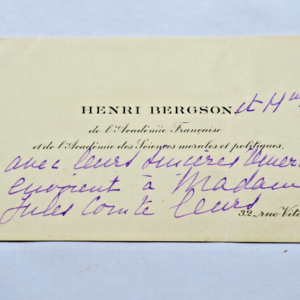 HENRI BERGSON et M
de l'Académie Française
et de l'Académie des Sciences morales et politiques,
avec leurs sincères
envoient à Madam
Jules Comte leurs
32, rue Vit